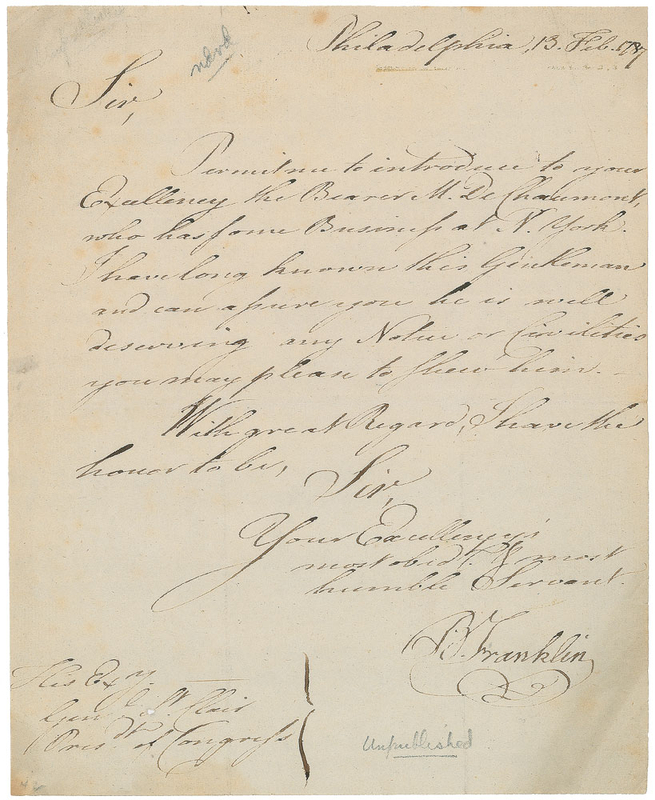 ndvd
Philadelphia, 13. Feb. 1787
Sir,
Permit me to introduce to your
Excellency the Bearer M. De Chaumont,
who has some Business at N. York.
I have long known this Gentleman
and can assure you he is well
deserving any Notice or Civilities
you may please to shew him.
With great Regard, I have the
honor to be,
Sir,
Your Excellency's
most obedt. & most
humble Servant.
B. Franklin
His Exy.
Genl. St. Clair
Presdt. of Congress
Unpublished